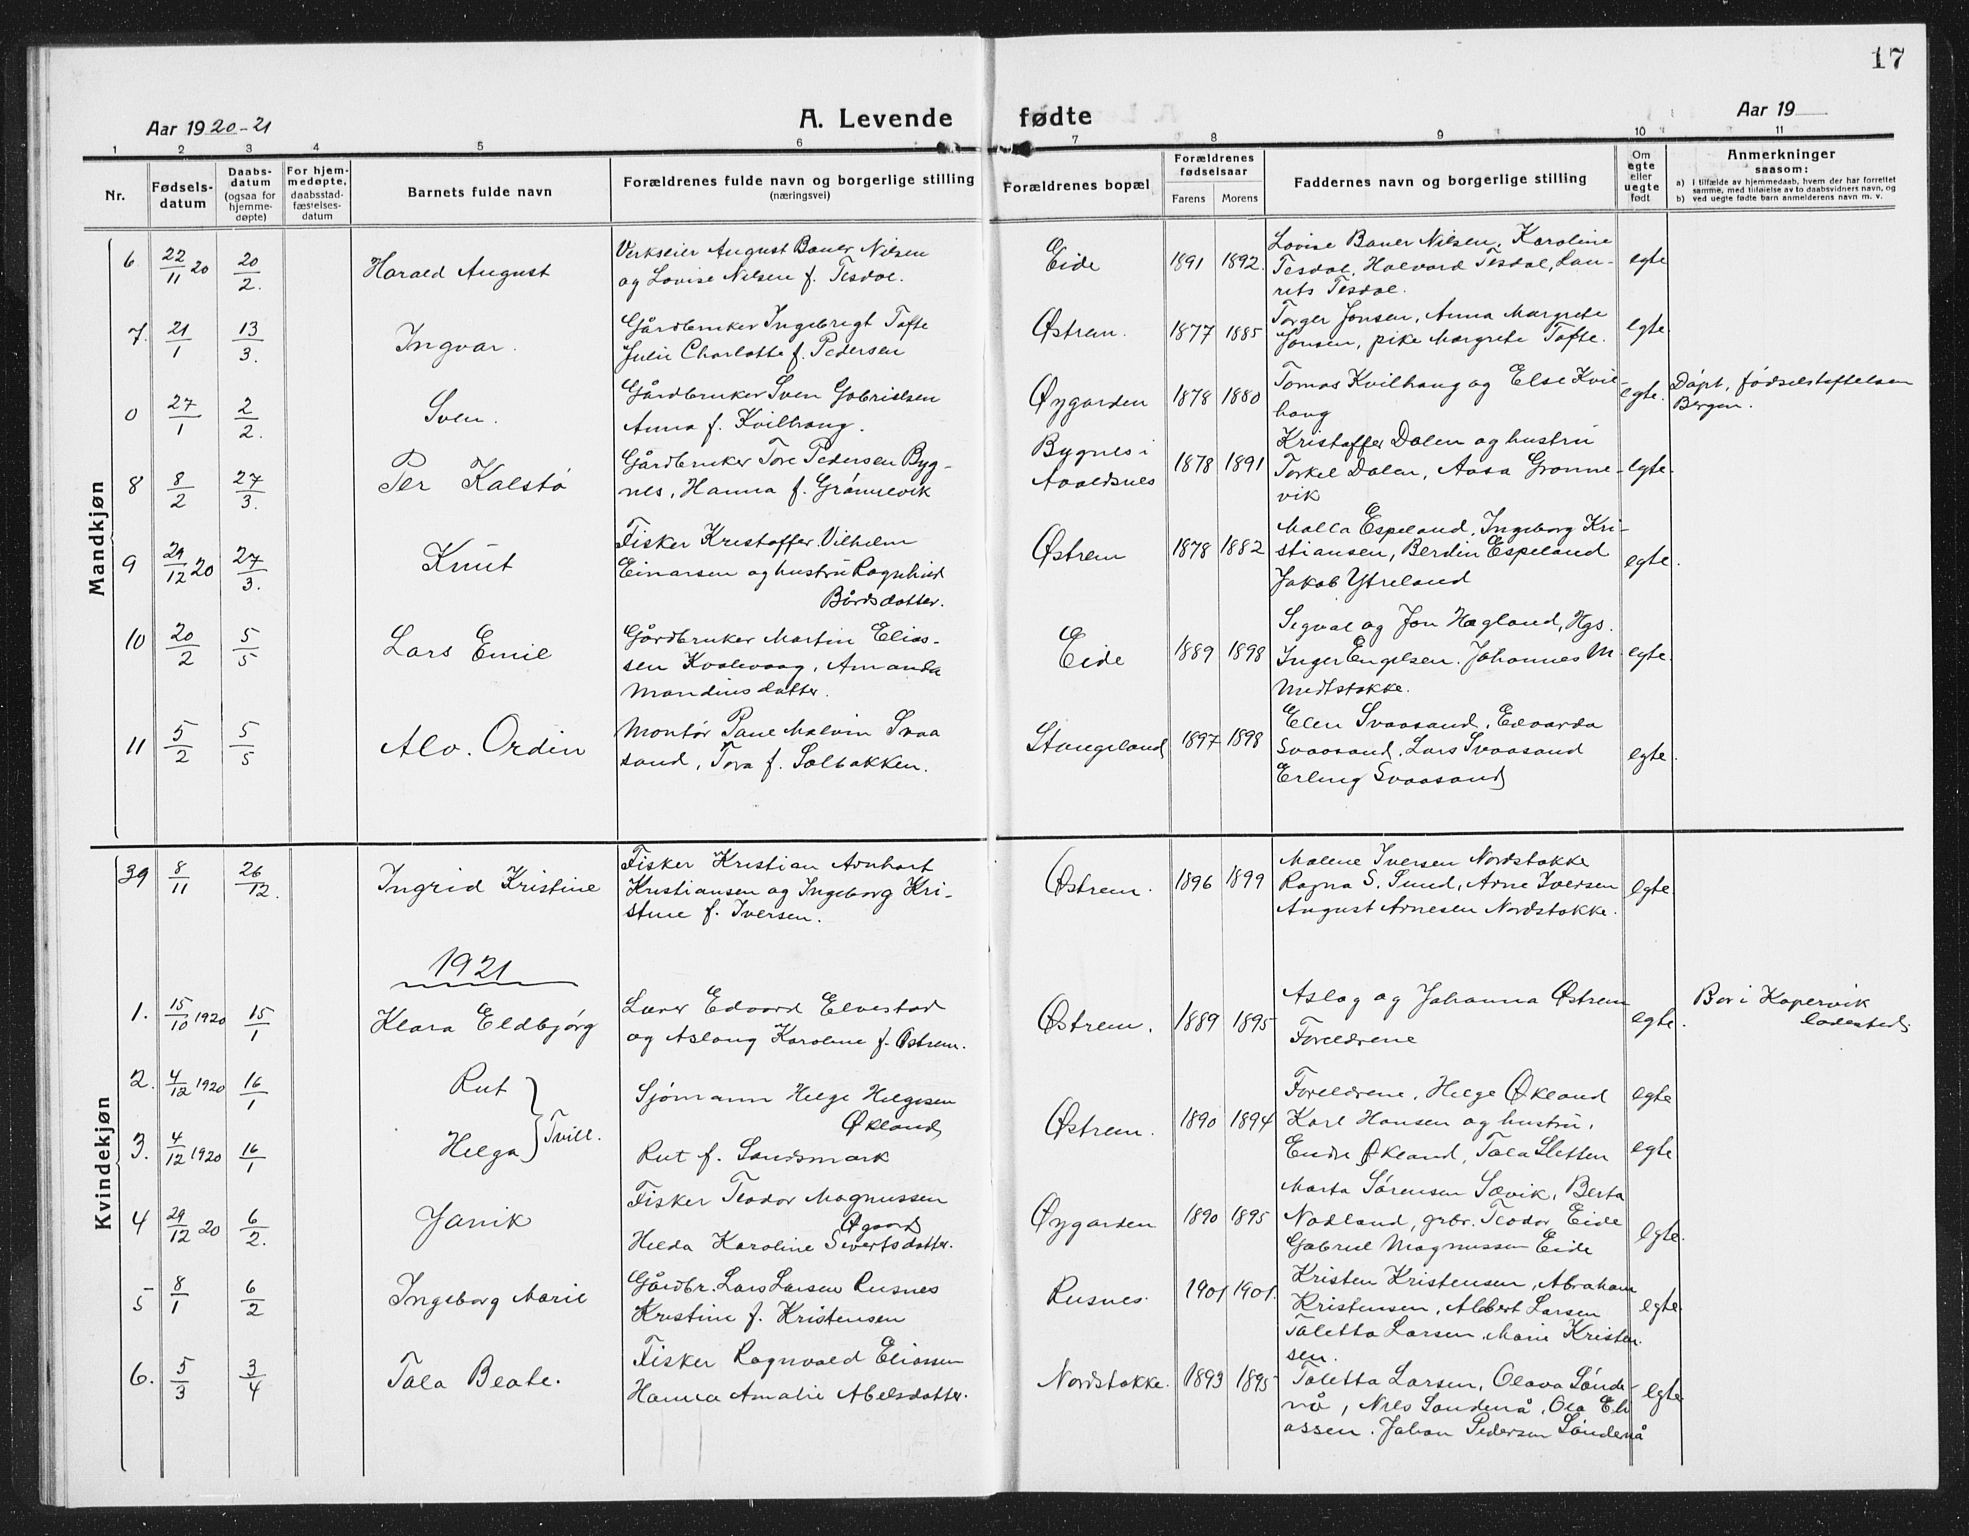 17
Aar 1920-21
A. Levende fødte
Aar 19
1 2 3 4 5 6 7 8 9 10 11
Nr.
Fødsels-
datum
Daabs-
datum
(ogsaa for
hjemme-
døpte)
For hjem-
medøpte,
daabsstad-
fæstelses-
datum
Barnets fulde navn
Forældrenes fulde navn og borgerlige stilling
(næringsvei)
Forældrenes bopæl
Forældrenes
fødselsaar
Farens Morens
Faddernes navn og borgerlige stilling
Om
egte
eller
uegte
født
Anmerkninger
saasom:
a) I tilfælde av hjemmedaab, hvem der har forrettet
samme, med tilføielse av to daabsvidners navn, og
b) ved uegte fødte barn anmelderens navn m. v.
Mandkjøn
6 22/11 20 20/2. Harald August
Verkseier August Bauer Nilsen
og Lovise Nilsen f. Tesdal.
Eide 1891 1892.
Lovise Bauer Nilsen, Karoline
Tesdal, Halvard Tesdal, Lau-
rits Tesdal.
egte
7. 21/1 13/3. Ingvar.
Gårdbruker Ingebrigt Tofte
Julie Charlotte f. Pedersen
Østrem. 1877 1885
Torger Jonsen, Anna Margrete
Jonsen, pike Margrete Tofte.
egte
0 27/1 2/2. Sven.
Gårdbruker Sven Gabrielsen
Anna f. Kvilhaug.
Øygarden 1878 1880
Tomas Kvilhaug og Else Kvil-
haug
egte.
Døpt, fødselstiftelsen
Bergen.
8 8/2 27/3. Per Kalstø
Gårdbruker Tore Pedersen Byg-
nes, Hanna f. Grønnevik
Bygnes i
Avaldsnes
1878 1891
Kristoffer Dalen og hustru
Torkel Dalen, Aasa Grønne-
vik
egte.
9 29/12 20 27/3. Knut
Fisker Kristoffer Vilhelm
Einarsen og hustru Ragnhild
Bårdsdatter.
Østrem 1878 1882
Malla Espeland, Ingeborg Kri-
stiansen, Berdin Espeland
Jakob Ytreland
egte.
10 20/2 5/5 Lars Emil
Gårdbruker Martin Elias-
sen Kvalevaag, Amanda
Mandiusdatter.
Eide 1889 1898
Sigval og Jon Hagland, Hgs.
Inger Engelsen. Johannes M
Midtstokke.
egte.
11 5/2 5/5 Alv. Ordin
Montør Paul Malvin Svaa
sand, Tora f. Solbakken.
Stangeland 1897 1898
Elen Svaasand, Edvarda
Svaasand, Lars Svaasand
Erling Svaasand
egte.
Kvindekjøn
39 8/11 26/12. Ingrid Kristine
Fisker Kristian Arnhart
Kristiansen og Ingeborg Kri-
stine f. Iversen.
Østrem. 1896 1899
Malene Iversen Nordstokke
Ragna S. Sund, Arne Iversen
August Arnesen Nordstokke.
egte.
1921
1. 15/10 1920 15/1 Klara Eldbjørg
Lærer Edvard Elvestad
og Aslaug Karoline f. Østrem.
Østrem. 1889 1895
Aslag og Johanna Østrem
Foreldrene
egte.
Bor i Kopervik
ladested.
2. 4/12 1920 16/1 Rut
3. 4/12 1920 16/1 Helga
Tvill.
Sjømann Helge Helgesen
Økland
Rut f. Sandsmark
Østrem. 1890 1894
Foreldrene, Helge Økland
Karl Hansen og hustru,
Endre Økland, Tala Sletten
egte
egte.
4 29/12 20 6/2. Janik
Fisker Teodor Magnussen
Øgaard
Hilda Karoline Sivertsdatter.
Øygarden 1890 1895
Marta Sørensen Sævik, Berta
Nodland, grbr. Teodor Eide
Gabriel Magnussen Eide
egte.
5 8/1 6/2 Ingeborg Marie
Gårdbr. Lars Larsen Rusnes
Kristine f. Kristensen
Rusnes. 1901 1901.
Kristen Kristensen, Abraham
Kristensen, Albert Larsen
Taletta Larsen, Marie Kristen-
sen.
egte.
6. 5/3 3/4 Tala Beate.
Fisker Ragnvald Eliassen
Hanna Amalie Abelsdatter.
Nordstokke. 1893 1895
Taletta Larsen, Olava Sønde-
nå, Nils Søndenå, Ola Eli
assen. Johan Pedersen Søndenå
egte